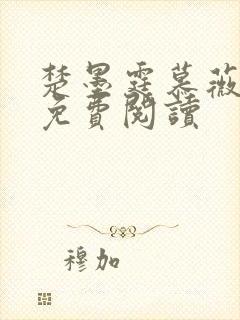 楚墨霆慕薇
免費閱讀
穆加